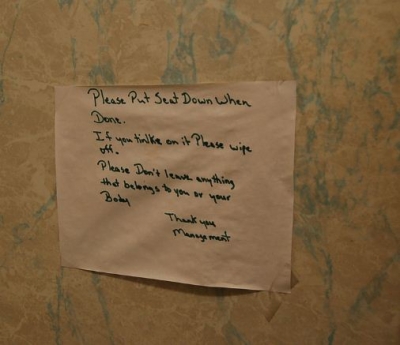 Please Put Seat Down When
Done.
If you tinlke on it Please wipe
off.
Please Don't leave anything
that belongs to you or your
Body
Thank you
Management